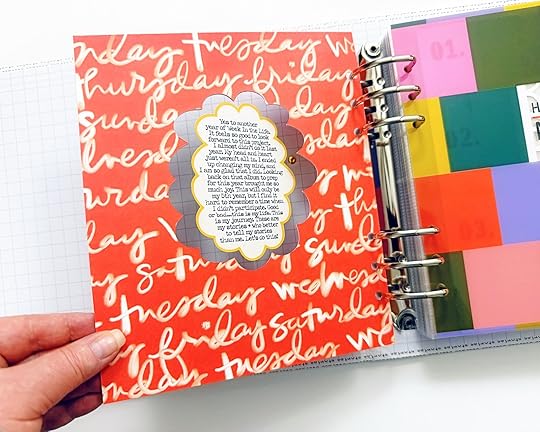 nday tuesday we
thursday friday
Yes to another
year of Week In the Life.
It feels so good to look
forward to this project.
I almost didn't do it last
year. My head and heart
just weren't all in. I ended
up changing my mind, and
I am so glad that I did. Looking
back on that album to prep
for this year brought me so
much joy. This will only be
my 8th year, but I find it
hard to remember a time when
I didn't participate. Good
or bad...this is my life. This
is my journey. These are
my stories + who better
to tell my stories
than me. Let's do this!
tuesday wednesd
y friday saturda
nday tuesday we
01.
02.
03.